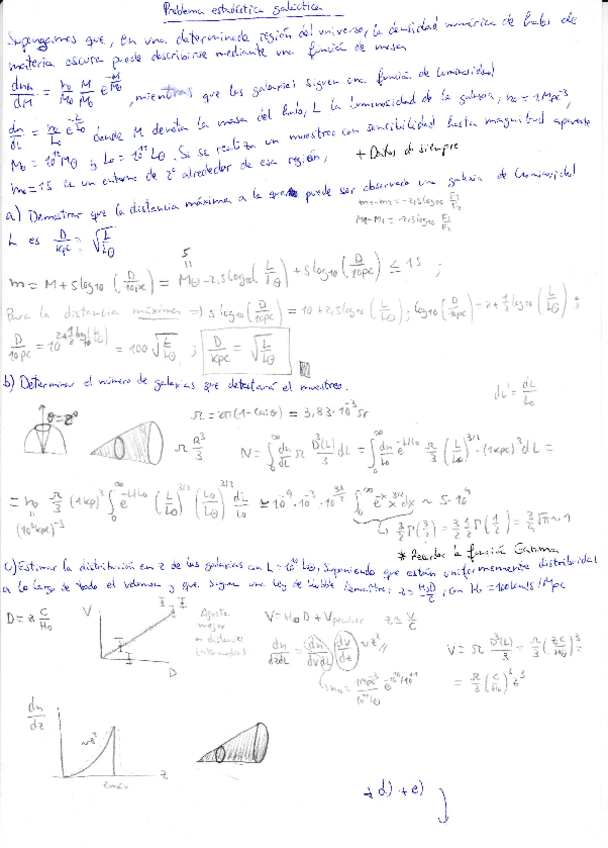 Problema estadística galáctica
Supongamos que, en una determinada región del universo, la densidad numérica de halos de
materia oscura puede describirse mediante una función de masa
dn_h/dM = n_0/M_0 M/M_0 e^{-M/M_0}, mientras que las galaxias siguen una función de luminosidad
dn/dL = n_0/L_0 e^{-L/L_0} donde M denota la masa del halo, L la luminosidad de la galaxia, n_0 = 1 Mpc^{-3},
M_0 = 10^{12} M_⊙ y L_0 = 10^{11} L_⊙. Si se realiza un muestreo con sensibilidad hasta magnitud aparente
m = 15 en un entorno de 2° alrededor de esa región, + Datos de siempre
m_1 - m_2 = -2,5 log_{10} F_1/F_2
a) Demostrar que la distancia máxima a la que puede ser observada una galaxia de luminosidad
L es D/kpc = √(L/L_⊙)
5
m = M + 5 log_{10} (D/10pc) = M_⊙ - 2,5 log_{10} (L/L_⊙) + 5 log_{10} (D/10pc) ≤ 15 ;
Para la distancia máxima => 5 log_{10} (D/10pc) = 10 + 2,5 log_{10} (L/L_⊙) ; log_{10} (D/10pc) = 2 + 1/2 log_{10} (L/L_⊙) ;
D/10pc = 10^{2+1/2 log(L/L_⊙)} = 100 √(L/L_⊙) ; D/kpc = √(L/L_⊙)
b) Determinar el número de galaxias que detectará el muestreo.
dL' = dL/L_0
θ = 2°
Ω = 2π(1 - cos θ) = 3,83·10^{-3} sr
Ω R^3/3
N = ∫_0^∞ dn/dL Ω D^3(L)/3 dL = ∫_0^∞ n_0/L_0 e^{-L/L_0} Ω/3 (L/L_⊙)^{3/2} · (1kpc)^3 dL =
= n_0 Ω/3 (1kpc)^3 ∫_0^∞ e^{-L/L_0} (L/L_0)^{3/2} (L_0/L_⊙)^{3/2} dL/L_0 ≃ 10^{-9} · 10^{-3} · 10^{33/2} ∫_0^∞ e^{-x} x^{3/2} dx ~ 5·10^4
(10^3 kpc)^{-3}
3/2 Γ(3/2) = 3/2 1/2 Γ(1/2) = 3/4 √π ~ 1
* Recordar la función Gamma
c) Estimar la distribución en z de las galaxias con L = 10^{10} L_⊙, suponiendo que están uniformemente distribuidas
a lo largo de todo el volumen y que siguen una ley de Hubble z = H_0 D/c, con H_0 = 100 km/s/Mpc
D = z c/H_0
V
D
Ajusta
mejor
en distancias
intermedias
V = H_0 D + V_peculiar z ≃ V/c
dn/dzdL = (dn/dVdL) (dV/dz) ∝ z^2
V = Ω D^3(L)/3 = Ω/3 (zc/H_0)^3 =
= Ω/3 (c/H_0)^3 z^3
dn/dz
∝ z^2
z
+ d) + e)